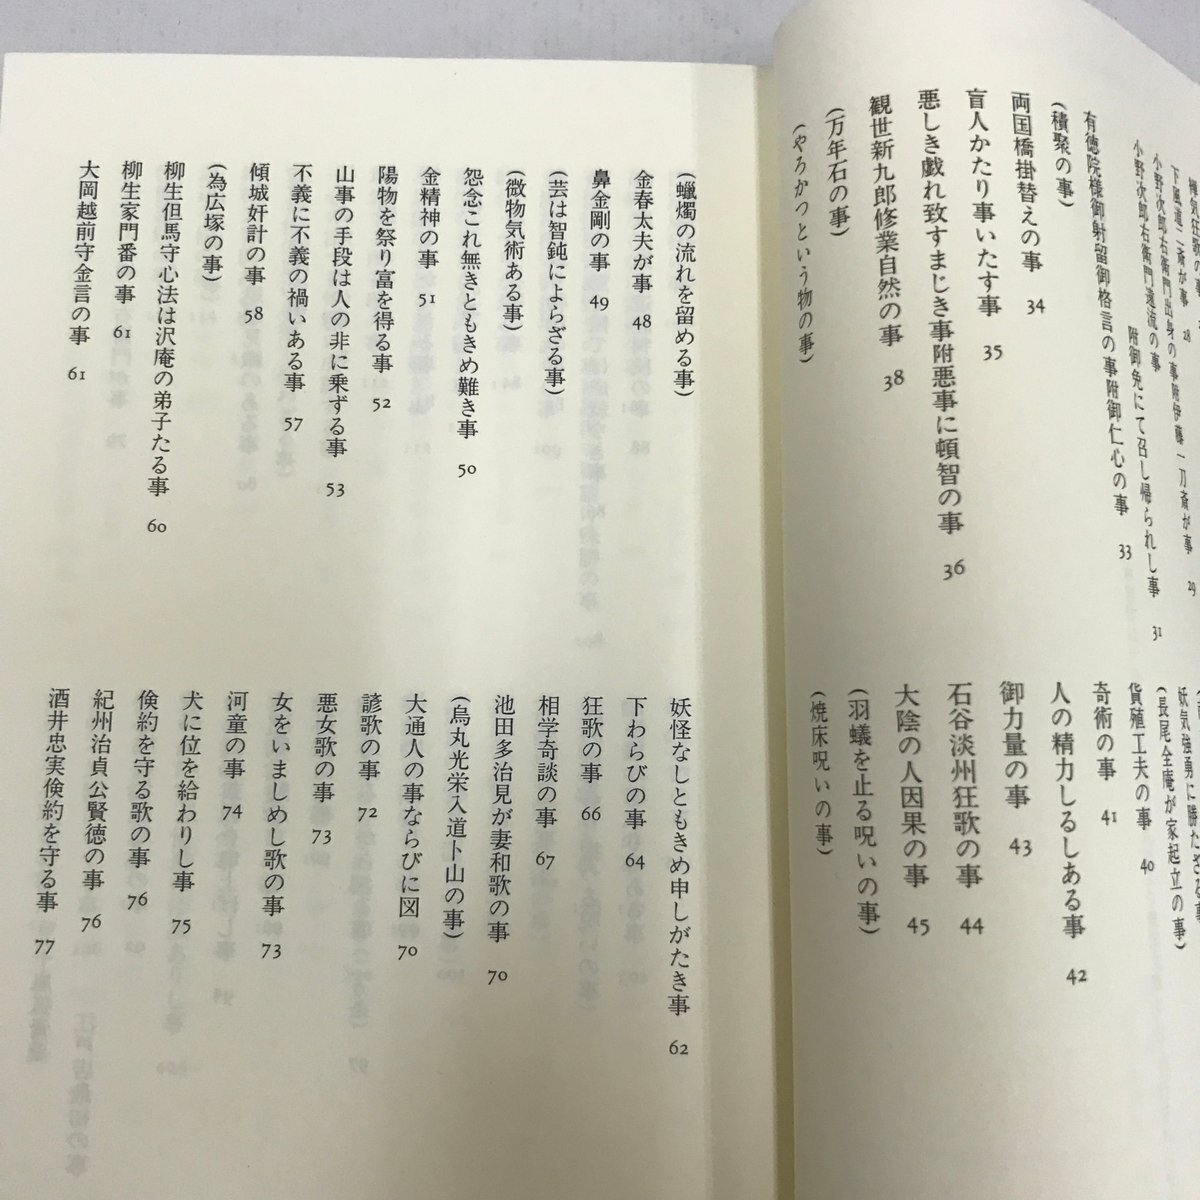 下風道二斎が事 28
小野次郎右衛門出身の事附伊藤一刀斎が事 29
小野次郎右衛門遠流の事
附御免にて召し帰られし事 31
有徳院様御射留御格言の事附御仁心の事 33
(積聚の事)
両国橋掛替えの事 34
盲人かたり事いたす事 35
悪しき戯れ致すまじき事附悪事に頓智の事 36
観世新九郎修業自然の事 38
(万年石の事)
(やろかつという物の事)
妖気強勇に勝たざる事
(長尾全庵が家起立の事)
貨殖工夫の事 40
奇術の事 41
人の精力しるしある事 42
御力量の事 43
石谷淡州狂歌の事 44
大陰の人因果の事 45
(羽蟻を止る呪いの事)
(焼床呪いの事)
(蠟燭の流れを留める事)
金春太夫が事 48
鼻金剛の事 49
(芸は智鈍によらざる事)
(微物気術ある事)
怨念これ無きともきめ難き事 50
金精神の事 51
陽物を祭り富を得る事 52
山事の手段は人の非に乗ずる事 53
不義に不義の禍いある事 57
傾城奸計の事 58
(為広塚の事)
柳生但馬守心法は沢庵の弟子たる事 60
柳生家門番の事 61
大岡越前守金言の事 61
妖怪なしともきめ申しがたき事 62
下わらびの事 64
狂歌の事 66
相学奇談の事 67
池田多治見が妻和歌の事 70
(烏丸光栄入道卜山の事)
大通人の事ならびに図 70
諺歌の事 72
悪女歌の事 73
女をいましめし歌の事 73
河童の事 74
犬に位を給わりし事 75
倹約を守る歌の事 76
紀州治貞公賢徳の事 76
酒井忠実倹約を守る事 77